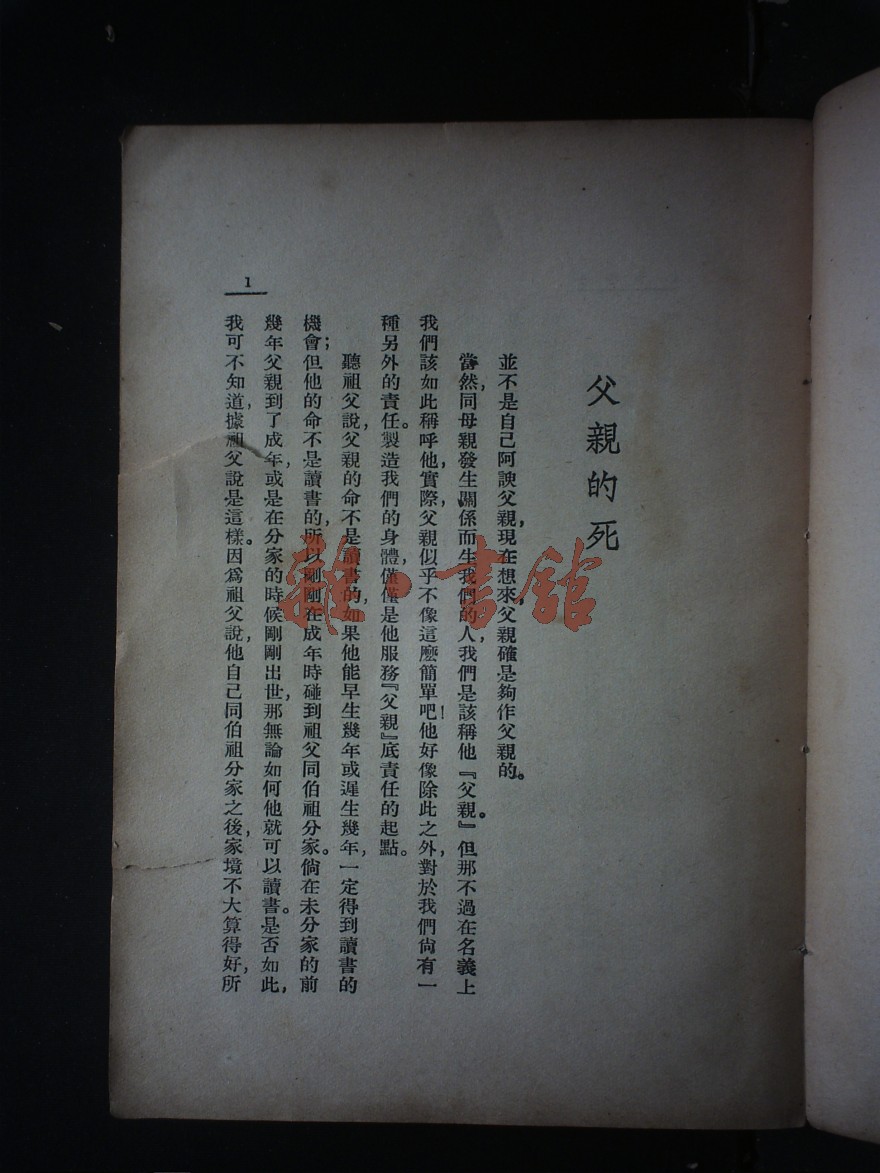 父親的死
並不是自己阿諛父親,現在想來,父親確是夠作父親的。
當然,同母親發生關係而生我們的人,我們是該稱他『父親』。但那不過在名義上
我們該如此稱呼他,實際,父親似乎不像這麽簡單吧!他好像除此之外,對於我們尙有一
種另外的責任。製造我們的身體,僅僅是他服務『父親』底責任的起點。
聽祖父說,父親的命不是讀書的,如果他能早生幾年或遲生幾年,一定得到讀書的
機會;但他的命不是讀書的,所以剛剛在成年時碰到祖父同伯祖分家。倘在未分家的前
幾年父親到了成年,或是在分家的時候剛剛出世,那無論如何他就可以讀書。是否如此,
我可不知道,據祖父說是這樣。因爲祖父說,他自己同伯祖分家之後,家境不大算得好,所
1
雜·書館